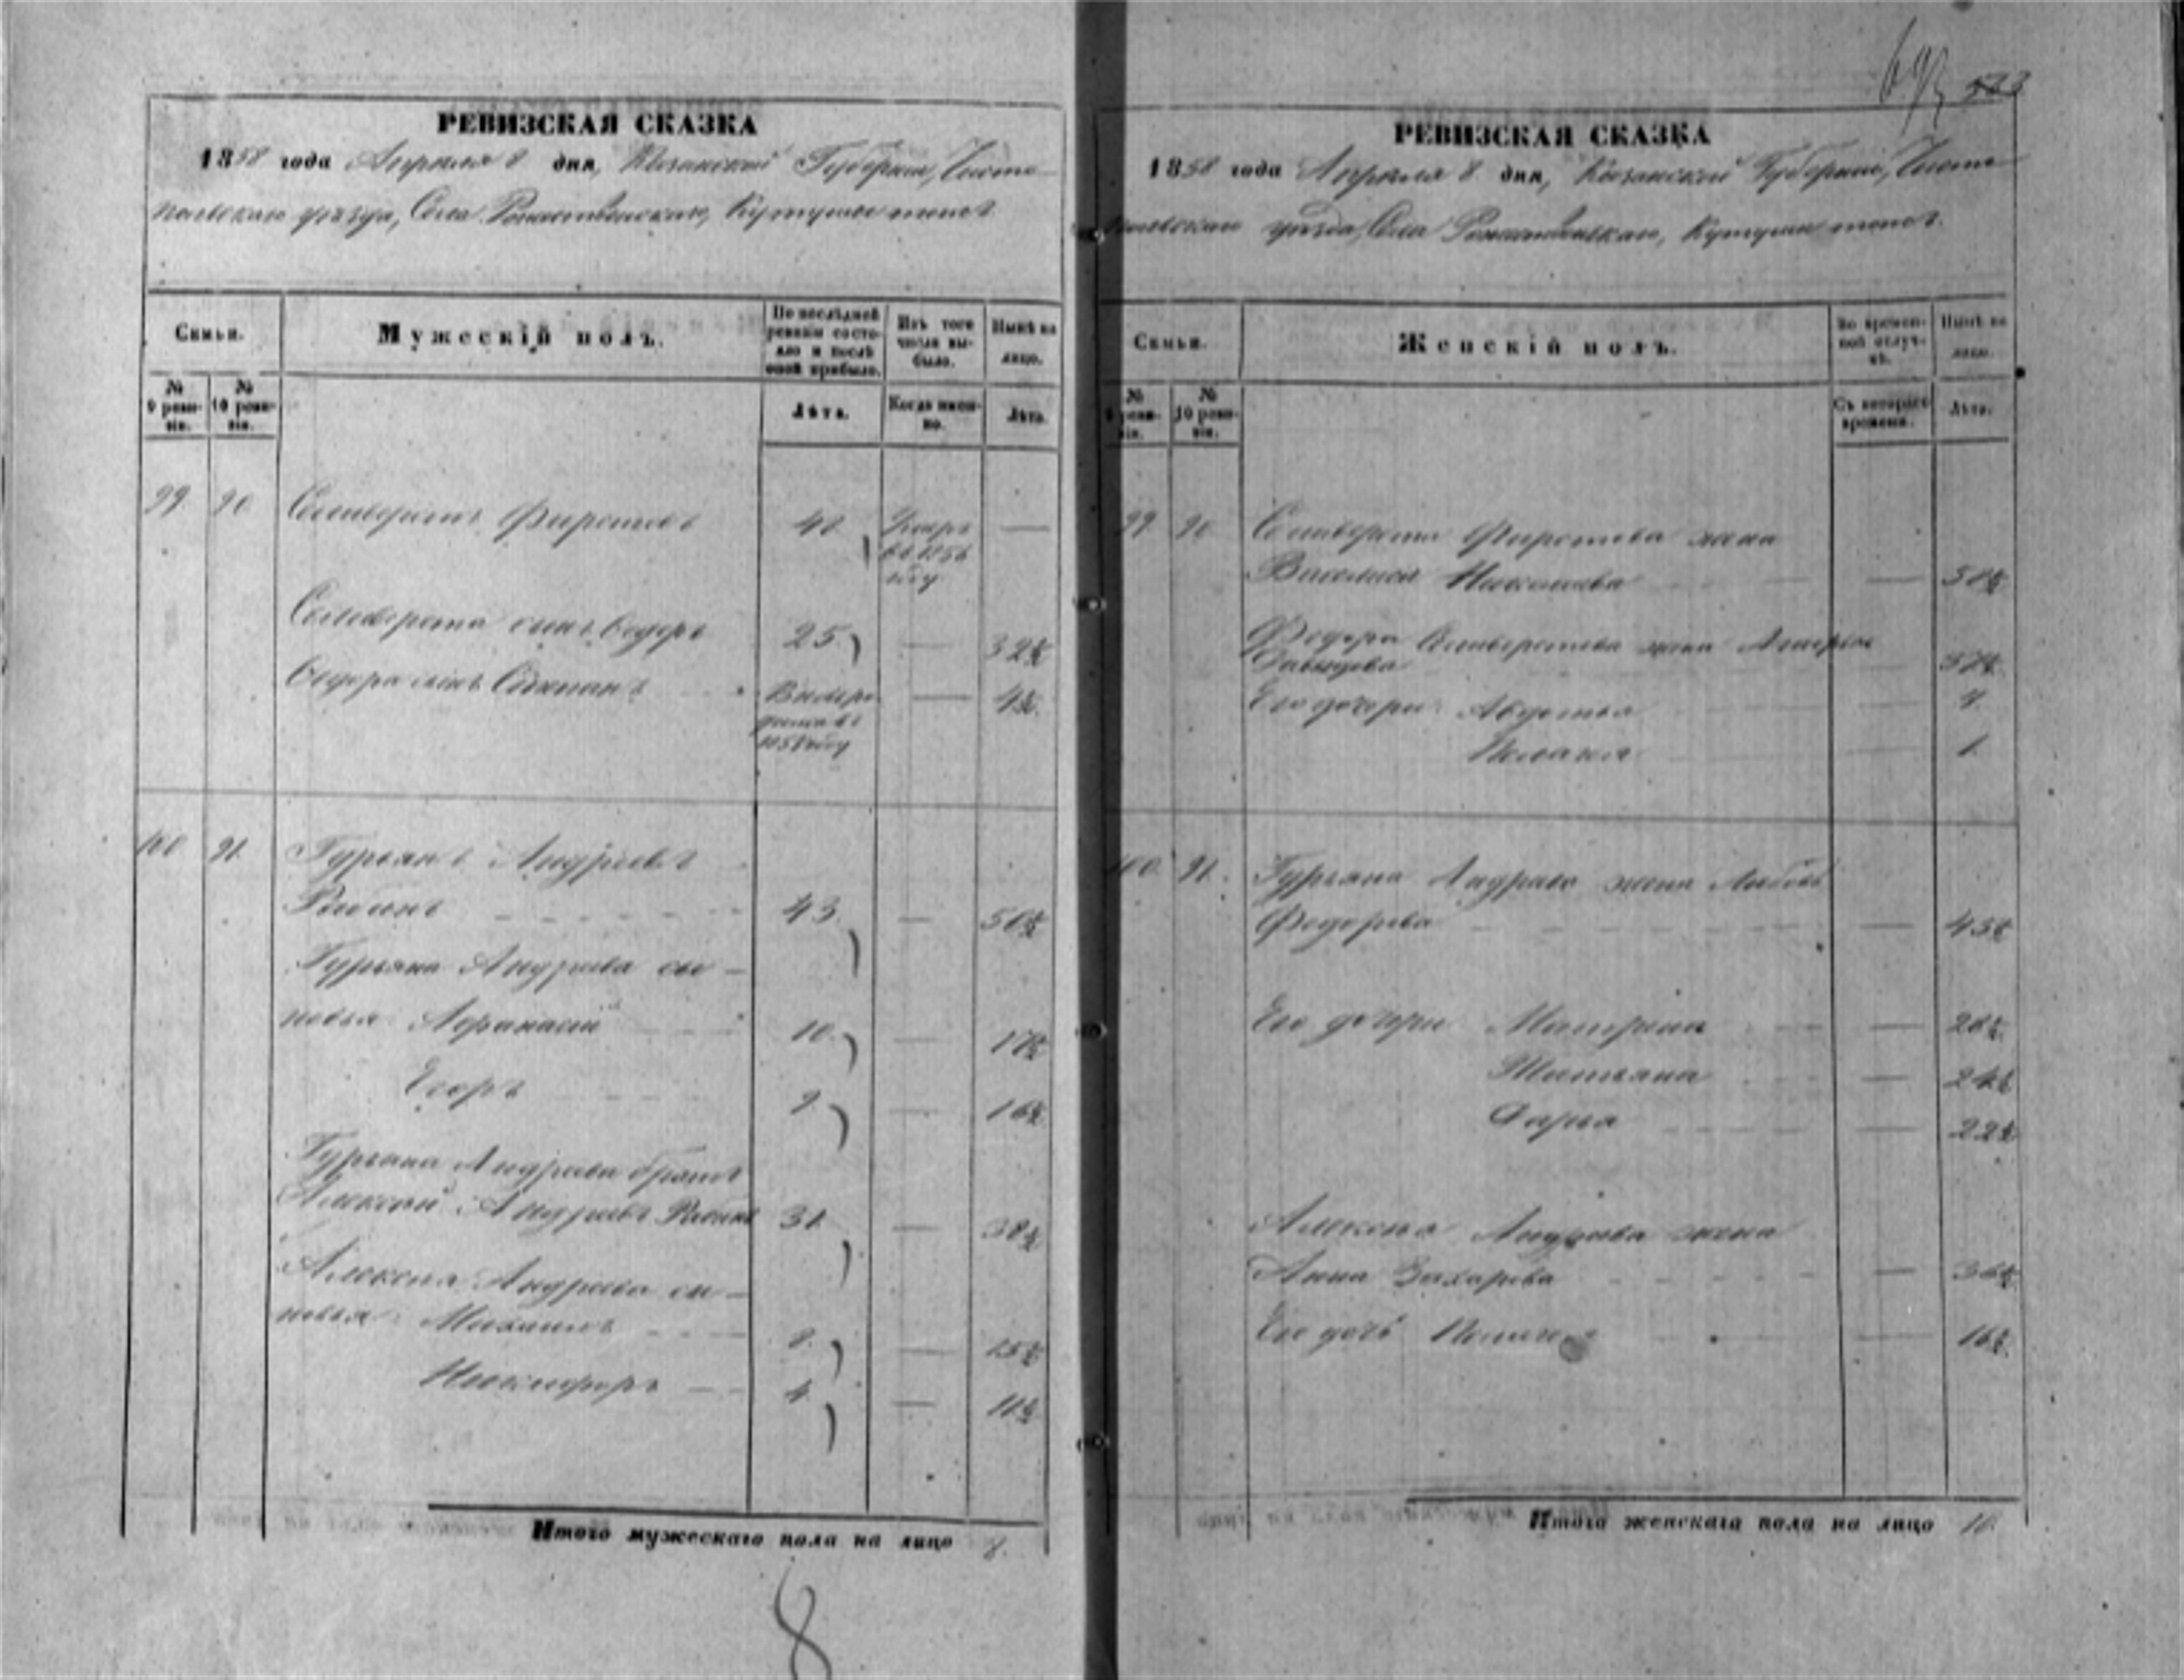 РЕВИЗСКАЯ СКАЗКА
1858 года Апреля 8 дня, Казанской Губерніи, Чисто-
польскаго уѣзда, Села Рождественскаго, Кутуши тожъ.
Семьи.
Мужескій полъ.
По послѣдней ревизіи состояло и послѣ оной прибыло.
Изъ того числа выбыло.
Нынѣ на лицо.
№ 9 ревизіи.
№ 10 ревизіи.
Лѣта.
Когда именно.
Лѣта.
99. 90 Селиверстъ Фирстовъ 48. Умеръ —
въ 1856
году
Селиверста сынъ Ѳедоръ 25. — 32½
Ѳедора сынъ Степанъ — 4½.
100 91. Гурьянъ Андреевъ
43. — 50½
Гурьяна Андреева сы-
новья: Афанасій 10. — 17½
Егоръ 9. — 16½
Гурьяна Андреева братъ
Алексѣй Андреевъ 31. — 38½
Алексѣя Андреева сы-
новья: Михаилъ 8. — 15½
Никифоръ 4. — 11½
Итого мужескаго пола на лицо 8.
8
РЕВИЗСКАЯ СКАЗКА
1858 года Апреля 8 дня, Казанской Губерніи, Чисто-
польскаго уѣзда, Села Рождественскаго, Кутуши тожъ.
Семьи.
Женскій полъ.
Во временной отлучкѣ.
Нынѣ на лицо.
№ 9 ревизіи.
№ 10 ревизіи.
Съ котораго времени.
Лѣта.
99. 90 Селиверста Фирстова жена
Василиса —
Федора Селиверстова жена
Давыдова
Его дочери: Авдотья
Пелагея 1.
100. 91. Гурьяна Андреева жена Любовь
Федорова — 45½
Его дочери Матрена —
Татьяна — 24½
Дарья — 22½
Алексѣя Андреева жена
Анна Захарова — 36½
Его дочь — 16½.
Итого женскаго пола на лицо 10.